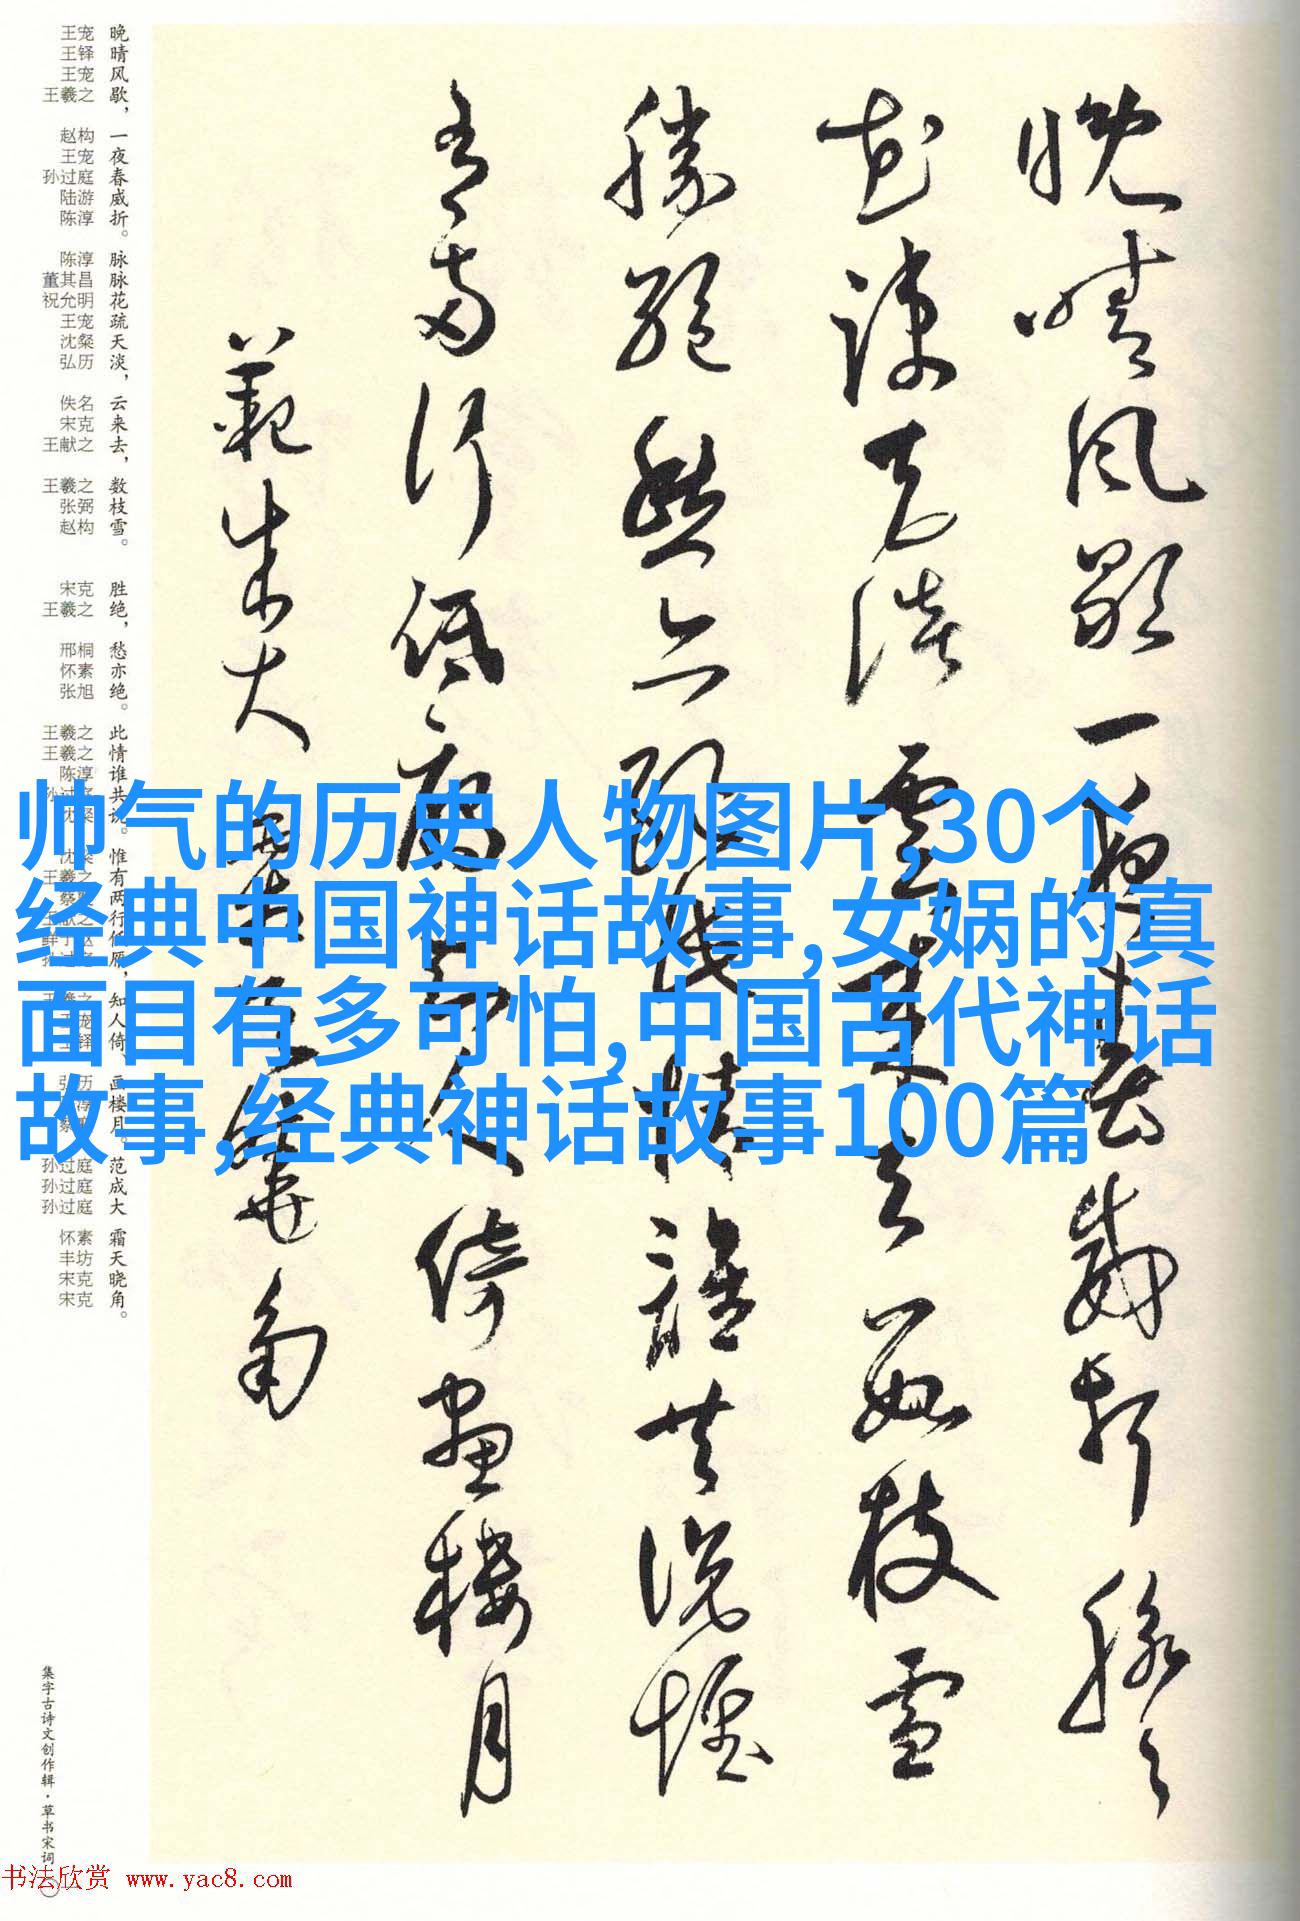 晚晴風歇一夜春威折脈々
花疎天淡雲來去數枝雪
勝絕愁亦絕此情誰共說惟
有兩行低雁知人倚畫樓月
范成大霜天曉角
晚晴风歇，一夜春威折。脉脉花疏天淡，云来去，数枝雪。 胜绝，愁亦绝。此情谁共说。惟有两行低雁，知人倚、画楼月。 范成大 霜天晓角。
王宠 王铎 王宠 王羲之 赵构 王宠 孙过庭 陆游 陈淳 陈淳 董其昌 祝允明 王宠 沈粲 弘历 佚名 宋克 王献之 王羲之 张弼 赵构 宋克 王羲之 邢桐 怀素 张旭 王羲之 王羲之 陈淳 孙过庭 孙过庭 孙过庭 怀素 丰坊 宋克 宋克
集字古诗文创作辑·草书宋词
帅气的历史人物图片,30个
经典中国神话故事,女娲的真
面目有多可怕,中国古代神话
故事,经典神话故事100篇
书法欣赏 www.yac8.com